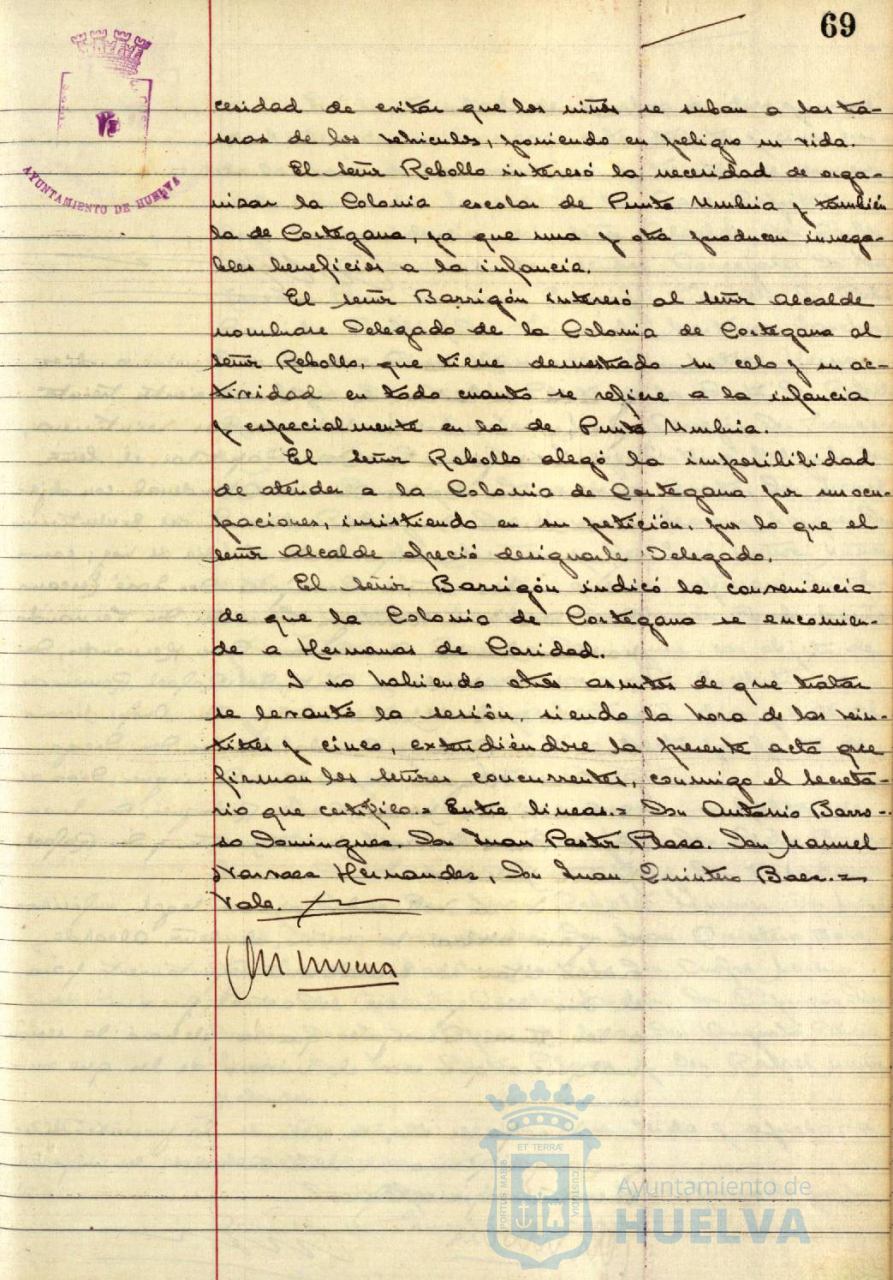 69
AYUNTAMIENTO DE HUELVA
cesidad de evitar que los niños se suban a las tra-
seras de los vehiculos, poniendo en peligro su vida.
El señor Rebollo interesó la necesidad de orga-
nizar la Colonia escolar de Punta Umbria y también
la de Cortegana, ya que una y otra producen innega-
bles beneficios a la infancia.
El señor Barrigón interesó al señor Alcalde
nombrase Delegado de la Colonia de Cortegana al
señor Rebollo, que tiene demostrado su celo y su ac-
tividad en todo cuanto se refiere a la infancia
y especialmente en la de Punta Umbria.
El señor Rebollo alegó la imposibilidad
de atender a la Colonia de Cortegana por sus ocu-
paciones, insistiendo en su petición, por lo que el
señor Alcalde ofreció designarle Delegado.
El señor Barrigón indicó la conveniencia
de que la Colonia de Cortegana se encomien-
de a Hermanas de Caridad.
Y no habiendo otros asuntos de que tratar
se levantó la sesión, siendo la hora de las vein-
titres y cinco, extendiéndose la presente acta que
firman los señores concurrentes, conmigo el Secreta-
rio que certifico.= Entre lineas.= Don Antonio Barro-
so Dominguez. Don Juan Pastor Plaza. Don Manuel
Narvaez Hernandez, Don Juan Quintero Baez.=
Vale.
ET TERRÆ
PORTUS MARIS
CUSTODIA
Ayuntamiento de
HUELVA